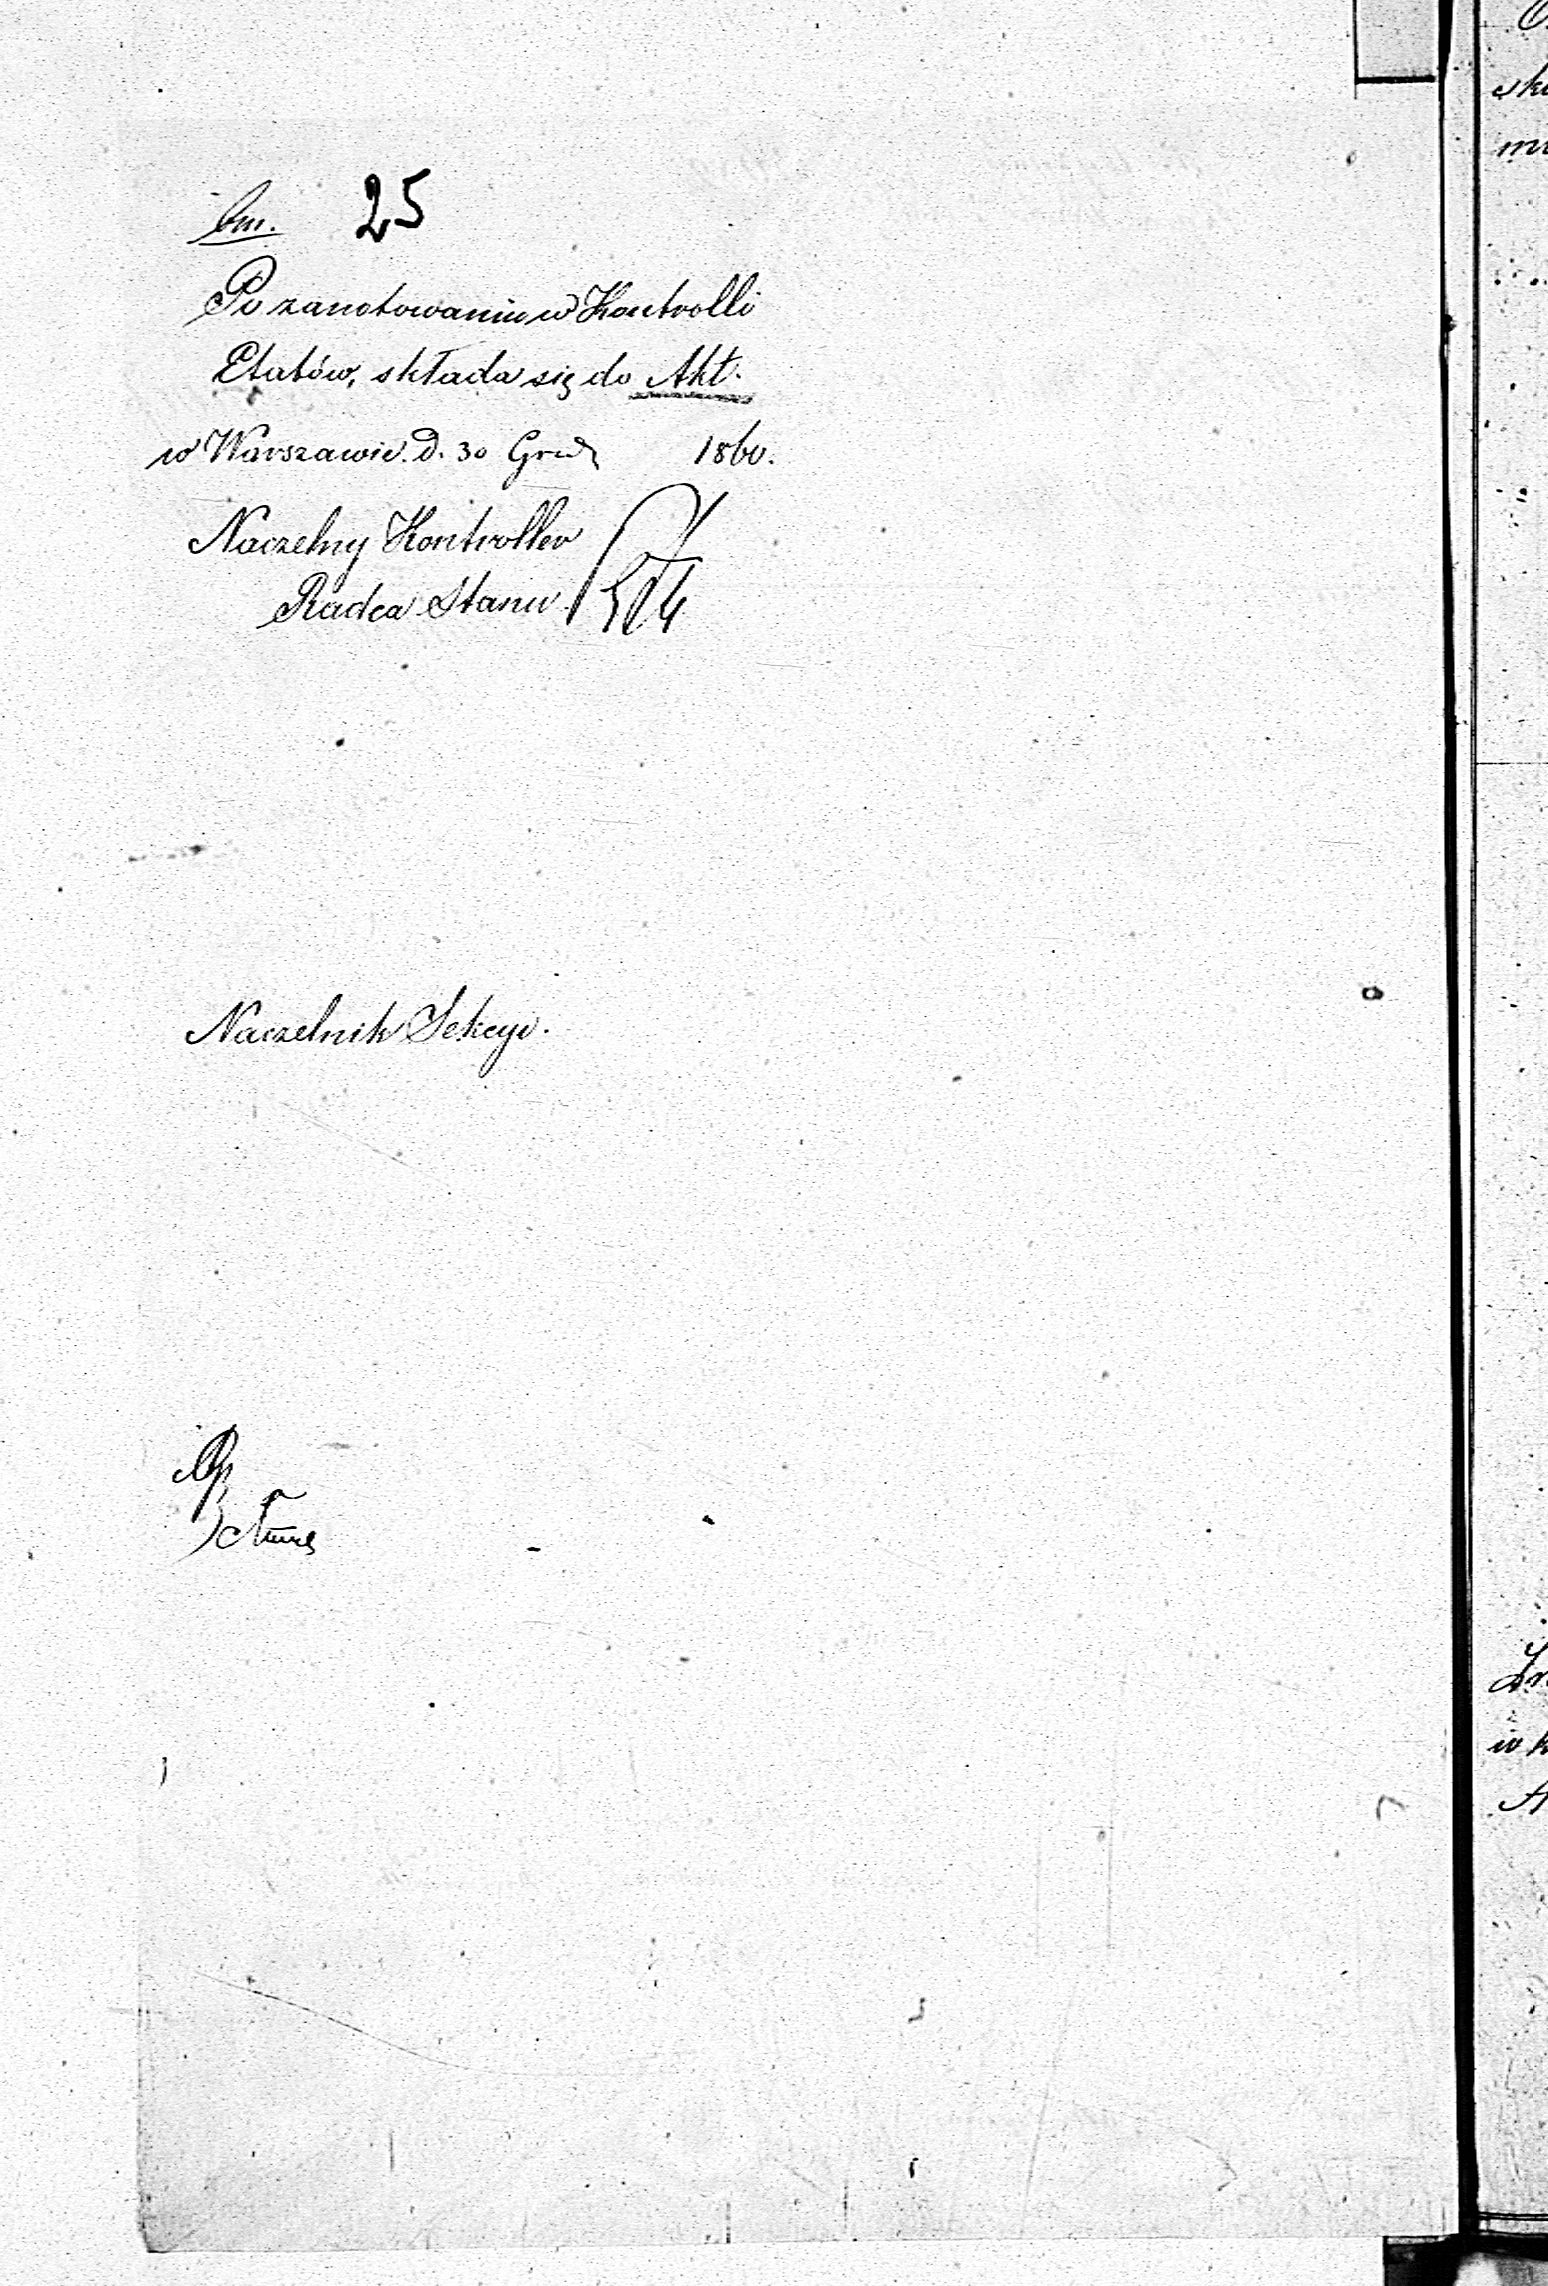 25
Po zanotowaniu w Kontrolli
Etatów, składa się do Akt.
w Warszawie d. 30 Grud 1860.
Naczelny Kontroller
Radca Stanu
Naczelnik Sekcyi.